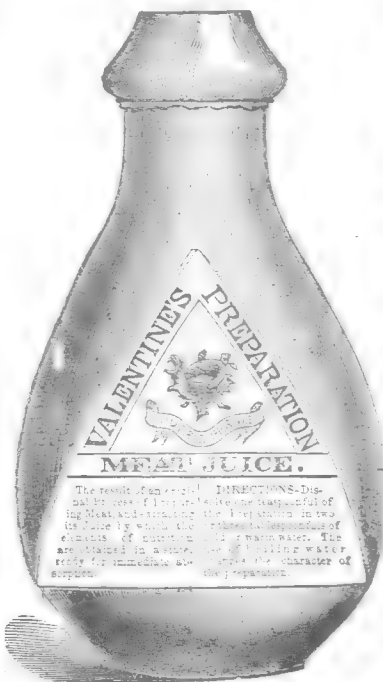 VALENTINE'S PREPARATION
MEAT JUICE.
The result of an
ing Meat and
its Juice by which the
elements of nutrition
are obtained in a state
ready for immediate ab-
sorption.
DIRECTIONS-Dis-
teaspoonful of
the Preparation in two
tablespoonfuls of
warm water. The
boiling water
the character of
the preparation.